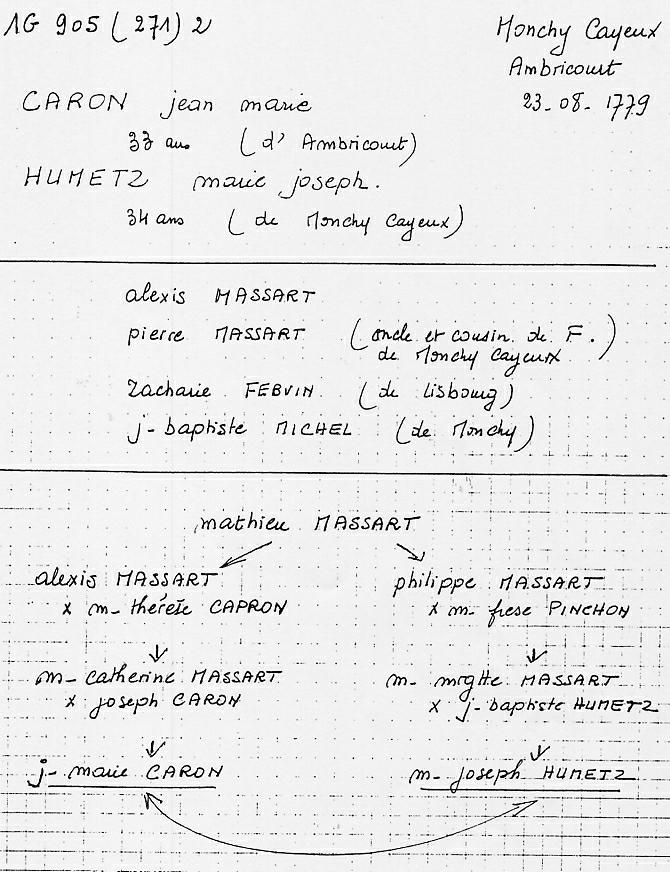 1G 905 (271) 2
Monchy Cayeux
Ambricourt
23-08-1779
CARON jean marie
33 ans (d' Ambricourt)
HUMETZ marie joseph.
34 ans (de Monchy Cayeux)
alexis MASSART
pierre MASSART (oncle et cousin de F.
de Monchy Cayeux)
Zacharie FEBVIN (de Lisbourg)
j-baptiste MICHEL (de Monchy)
mathieu MASSART
alexis MASSART
x m-thérèse CAPRON
philippe MASSART
x m-frese PINCHON
m-catherine MASSART
x joseph CARON
m-mgtte MASSART
x j-baptiste HUMETZ
j-marie CARON
m-joseph HUMETZ